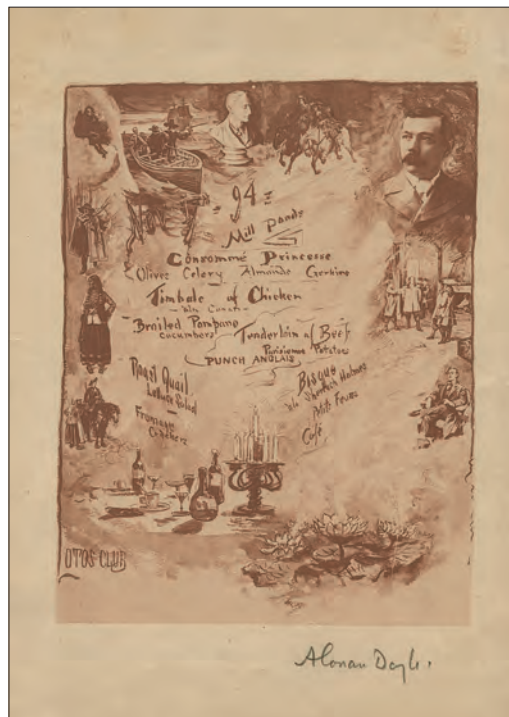 Nov 17
- 94 =
Mill Ponds
Consommé Princesse
Olives Celery Almonds
Timbale of Chicken
Broiled Pompano
Cucumbers
Tenderloin of Beef
Parisienne Potatoes
PUNCH ANGLAIS
Roast Quail
Lettuce Salad
Bisque
a la Sherlock Holmes
Petite Feures
Café
OTOS CLUB
A Conan Doyle.